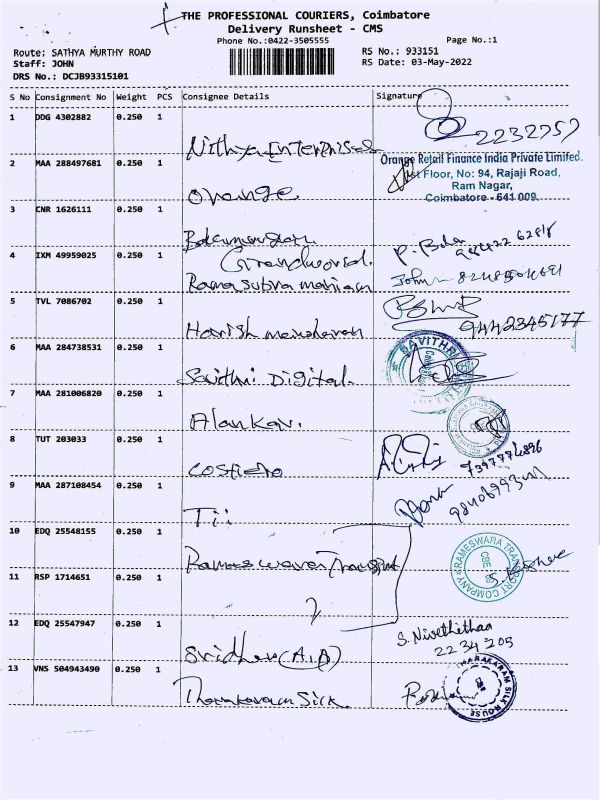 THE PROFESSIONAL COURIERS, Coimbatore
Delivery Runsheet - CMS
Phone No.:0422-3505555
Page No.:1
Route: SATHYA MURTHY ROAD
RS No.: 933151
Staff: JOHN
RS Date: 03-May-2022
DRS No.: DCJB93315101
S No Consignment No Weight PCS Consignee Details Signature
1 DDG 4302882 0.250 1 Nithya Enterprises 2232757
2 MAA 288497681 0.250 1 Orange
Orange Retail Finance India Private Limited.
Floor, No: 94, Rajaji Road,
Ram Nagar,
Coimbatore - 641 009.
3 CNR 1626111 0.250 1
Grandworld.
4 IXM 49959025 0.250 1 Ramasubramaniam John
5 TVL 7086702 0.250 1 Harish 9442345177
6 MAA 284738531 0.250 1 Savithri Digital.
SAVITHRI
7 MAA 281006820 0.250 1 Alankar.
8 TUT 203033 0.250 1
9 MAA 287108454 0.250 1 Tii
10 EDQ 25548155 0.250 1 Rameswara Transport
RAMESWARA TRANSPORT COMPANY
CBE
11 RSP 1714651 0.250 1
12 EDQ 25547947 0.250 1 Sridhar (A.A) S. Nivethithaa
2234205
13 VNS 504943490 0.250 1 Silk.
SILK HOUSE